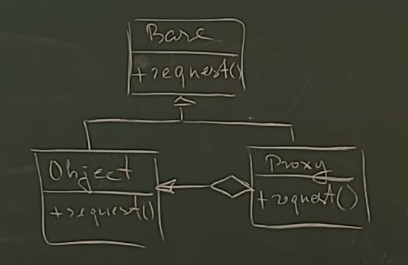 Base
+request()
Object
+request()
Proxy
+request()